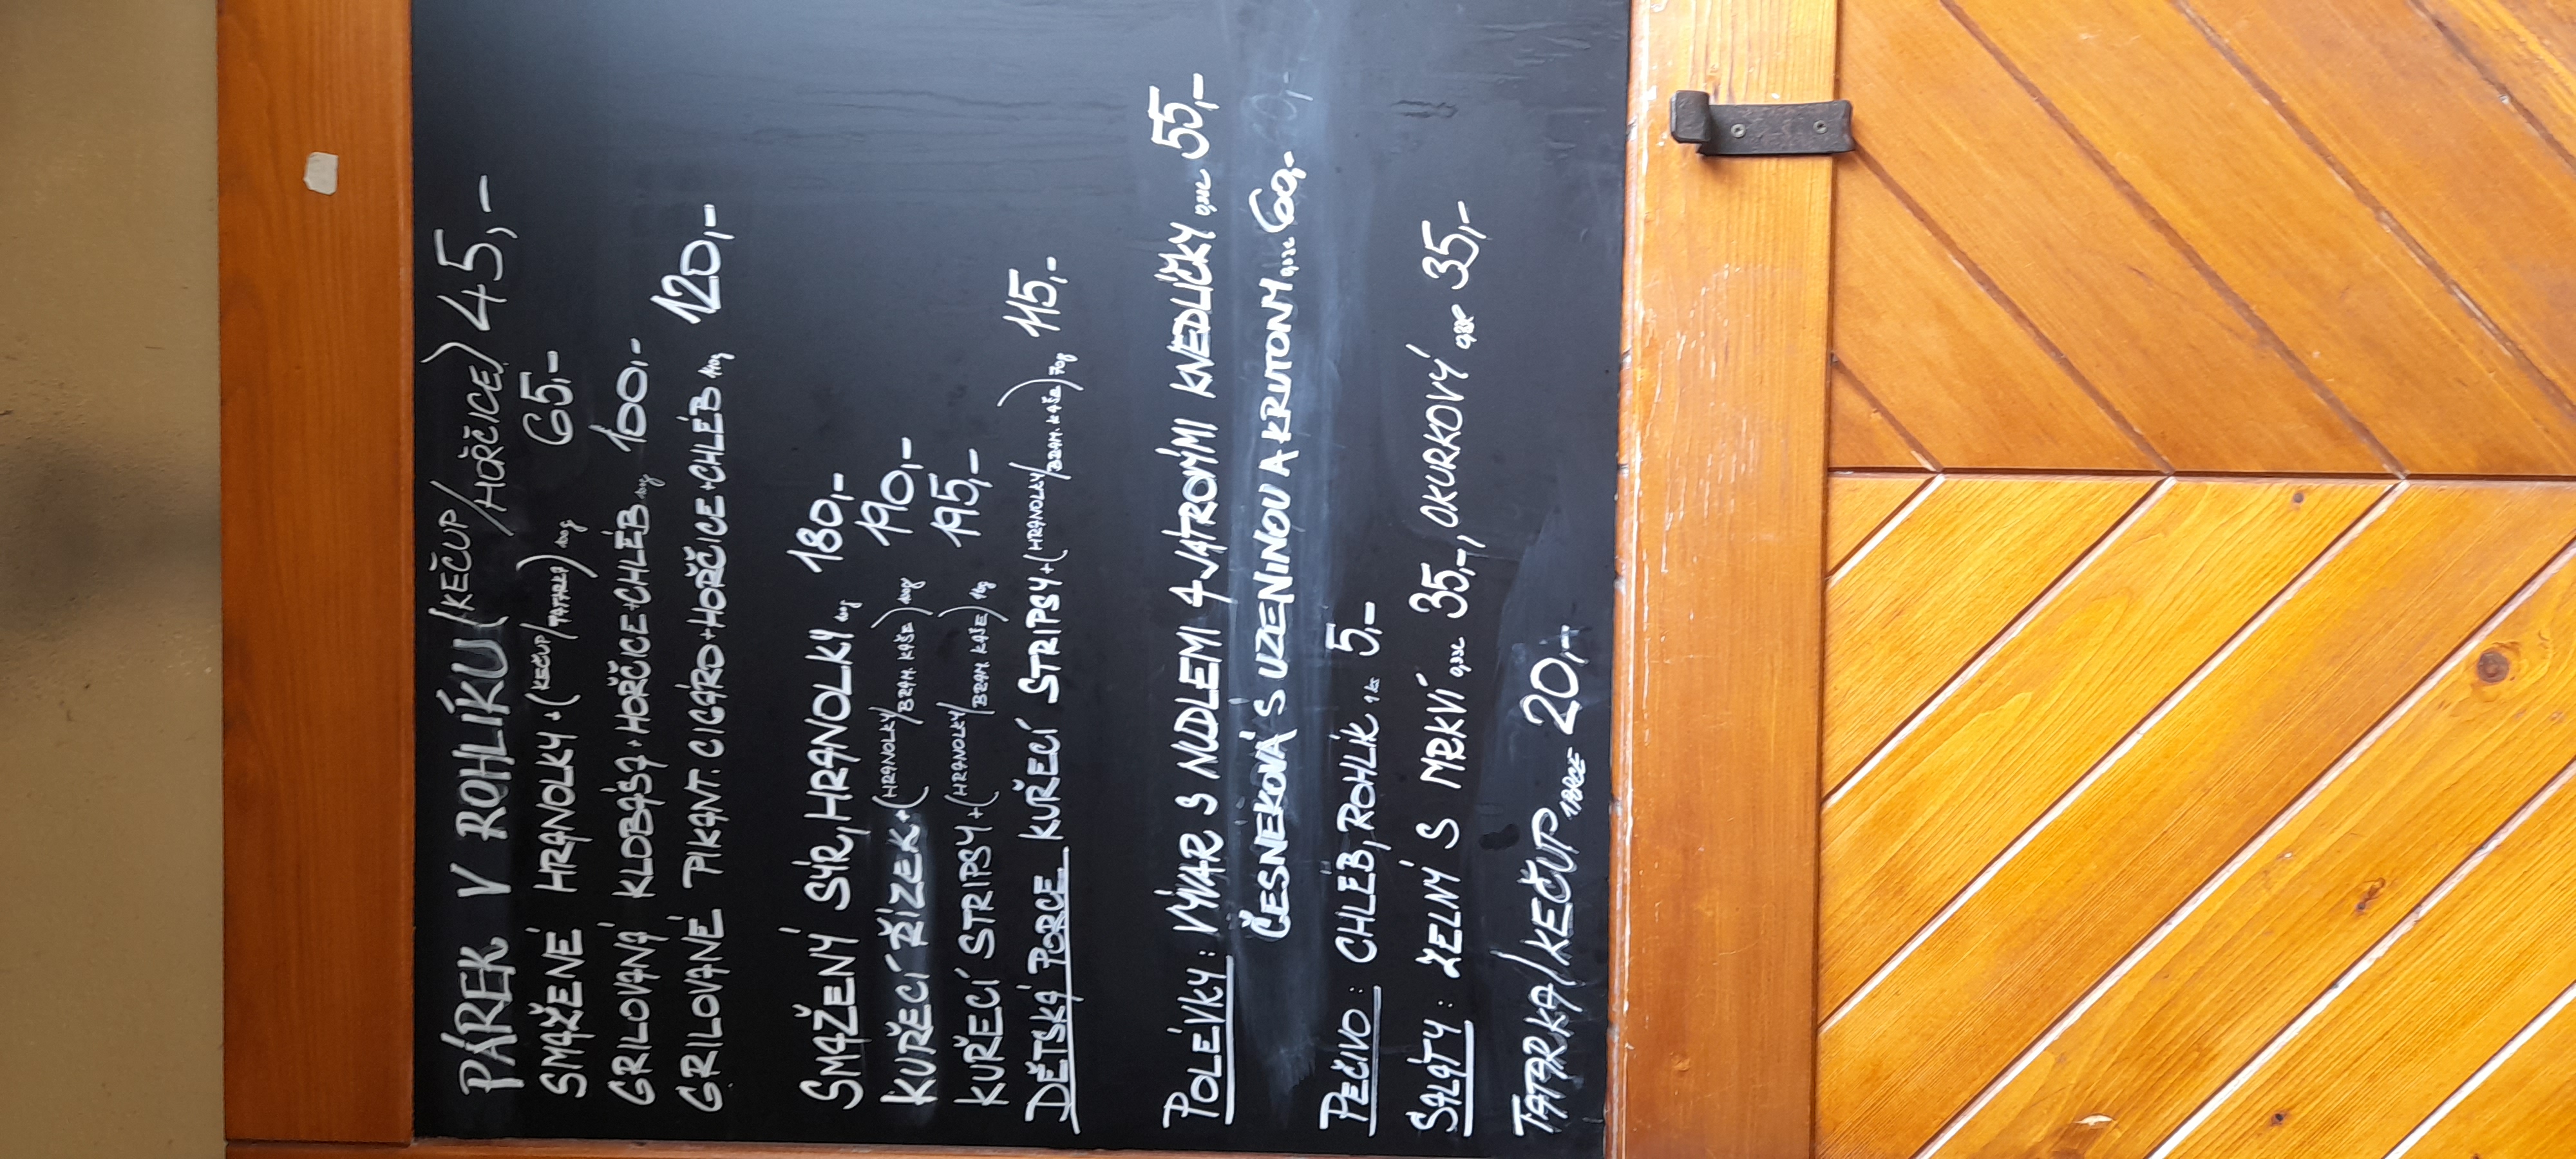 PÁREK V ROHLÍKU (KEČUP/HOŘČICE) 45,-
SMAŽENÉ HRANOLKY + (KEČUP/TATARKA) 65,-
GRILOVANÁ KLOBÁSA + HOŘČICE + CHLÉB 100,-
GRILOVANÉ PIKANT. CIGÁRO + HOŘČICE + CHLÉB 120,-
SMAŽENÝ SÝR, HRANOLKY 180,-
KUŘECÍ ŘÍZEK + (HRANOLKY/BRAM. KAŠE) 100g 190,-
KUŘECÍ STRIPSY + (HRANOLKY/BRAM. KAŠE) 195,-
DĚTSKÁ PORCE KUŘECÍ STRIPSY + (HRANOLKY/BRAM. KAŠE) 70g 115,-
POLÉVKY: VÝVAR S NUDLEMI A JÁTROVÝMI KNEDLÍČKY 55,-
ČESNEKOVÁ S UZENINOU A KRUTONY 60,-
PEČIVO: CHLÉB, ROHLÍK 1ks 5,-
SALÁTY: ZELNÝ S MRKVÍ 35,-, OKURKOVÝ 35,-
TATARKA/KEČUP 1PORCE 20,-